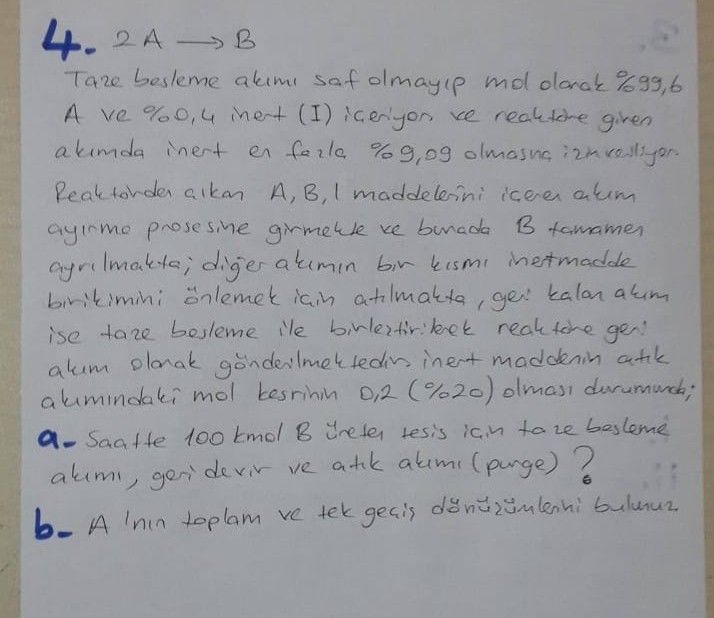 4. 2A → B
Taze besleme akımı saf olmayıp mol olarak %99,6
A ve %0,4 inert (I) içeriyor ve reaktöre giren
akımda inert en fazla %9,09 olmasına izin veriliyor.
Reaktörden çıkan A, B, I maddelerini içeren akım
ayırma prosesine girmekte ve burada B tamamen
ayrılmakta; diğer akımın bir kısmı inert madde
birikimini önlemek için atılmakta, geri kalan akım
ise taze besleme ile birleştirilerek reaktöre geri
akım olarak gönderilmektedir. inert maddenin atık
akımındaki mol kesrinin 0,2 (%20) olması durumunda;
a- Saatte 100 kmol B üreten tesis için taze besleme
akımı, geri devir ve atık akımı (purge) ?
b- A 'nın toplam ve tek geçiş dönüşümlerini bulunuz